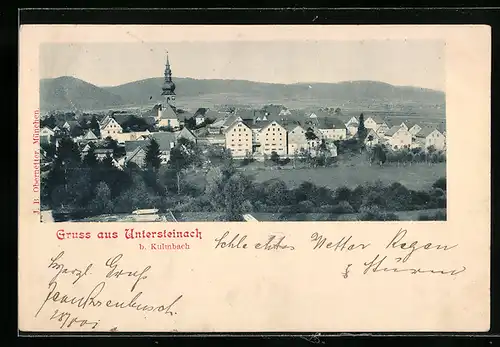 J. B. Obernetter, München
Gruss aus Untersteinach
b. Kulmbach
Schlechtes Wetter Regen
& Sturm
Herzl. Gruss